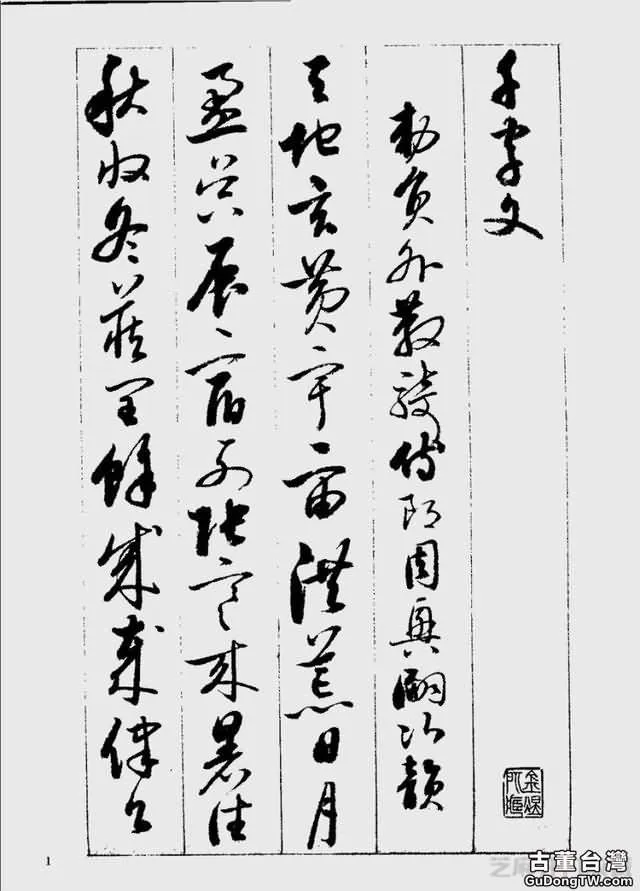 千字文
勅員外散騎侍郎周興嗣次韻
天地玄黃宇宙洪荒日月
盈昃辰宿列張寒來暑往
秋收冬藏閏餘成歲律召
1
古董台灣
GuDongTW.com